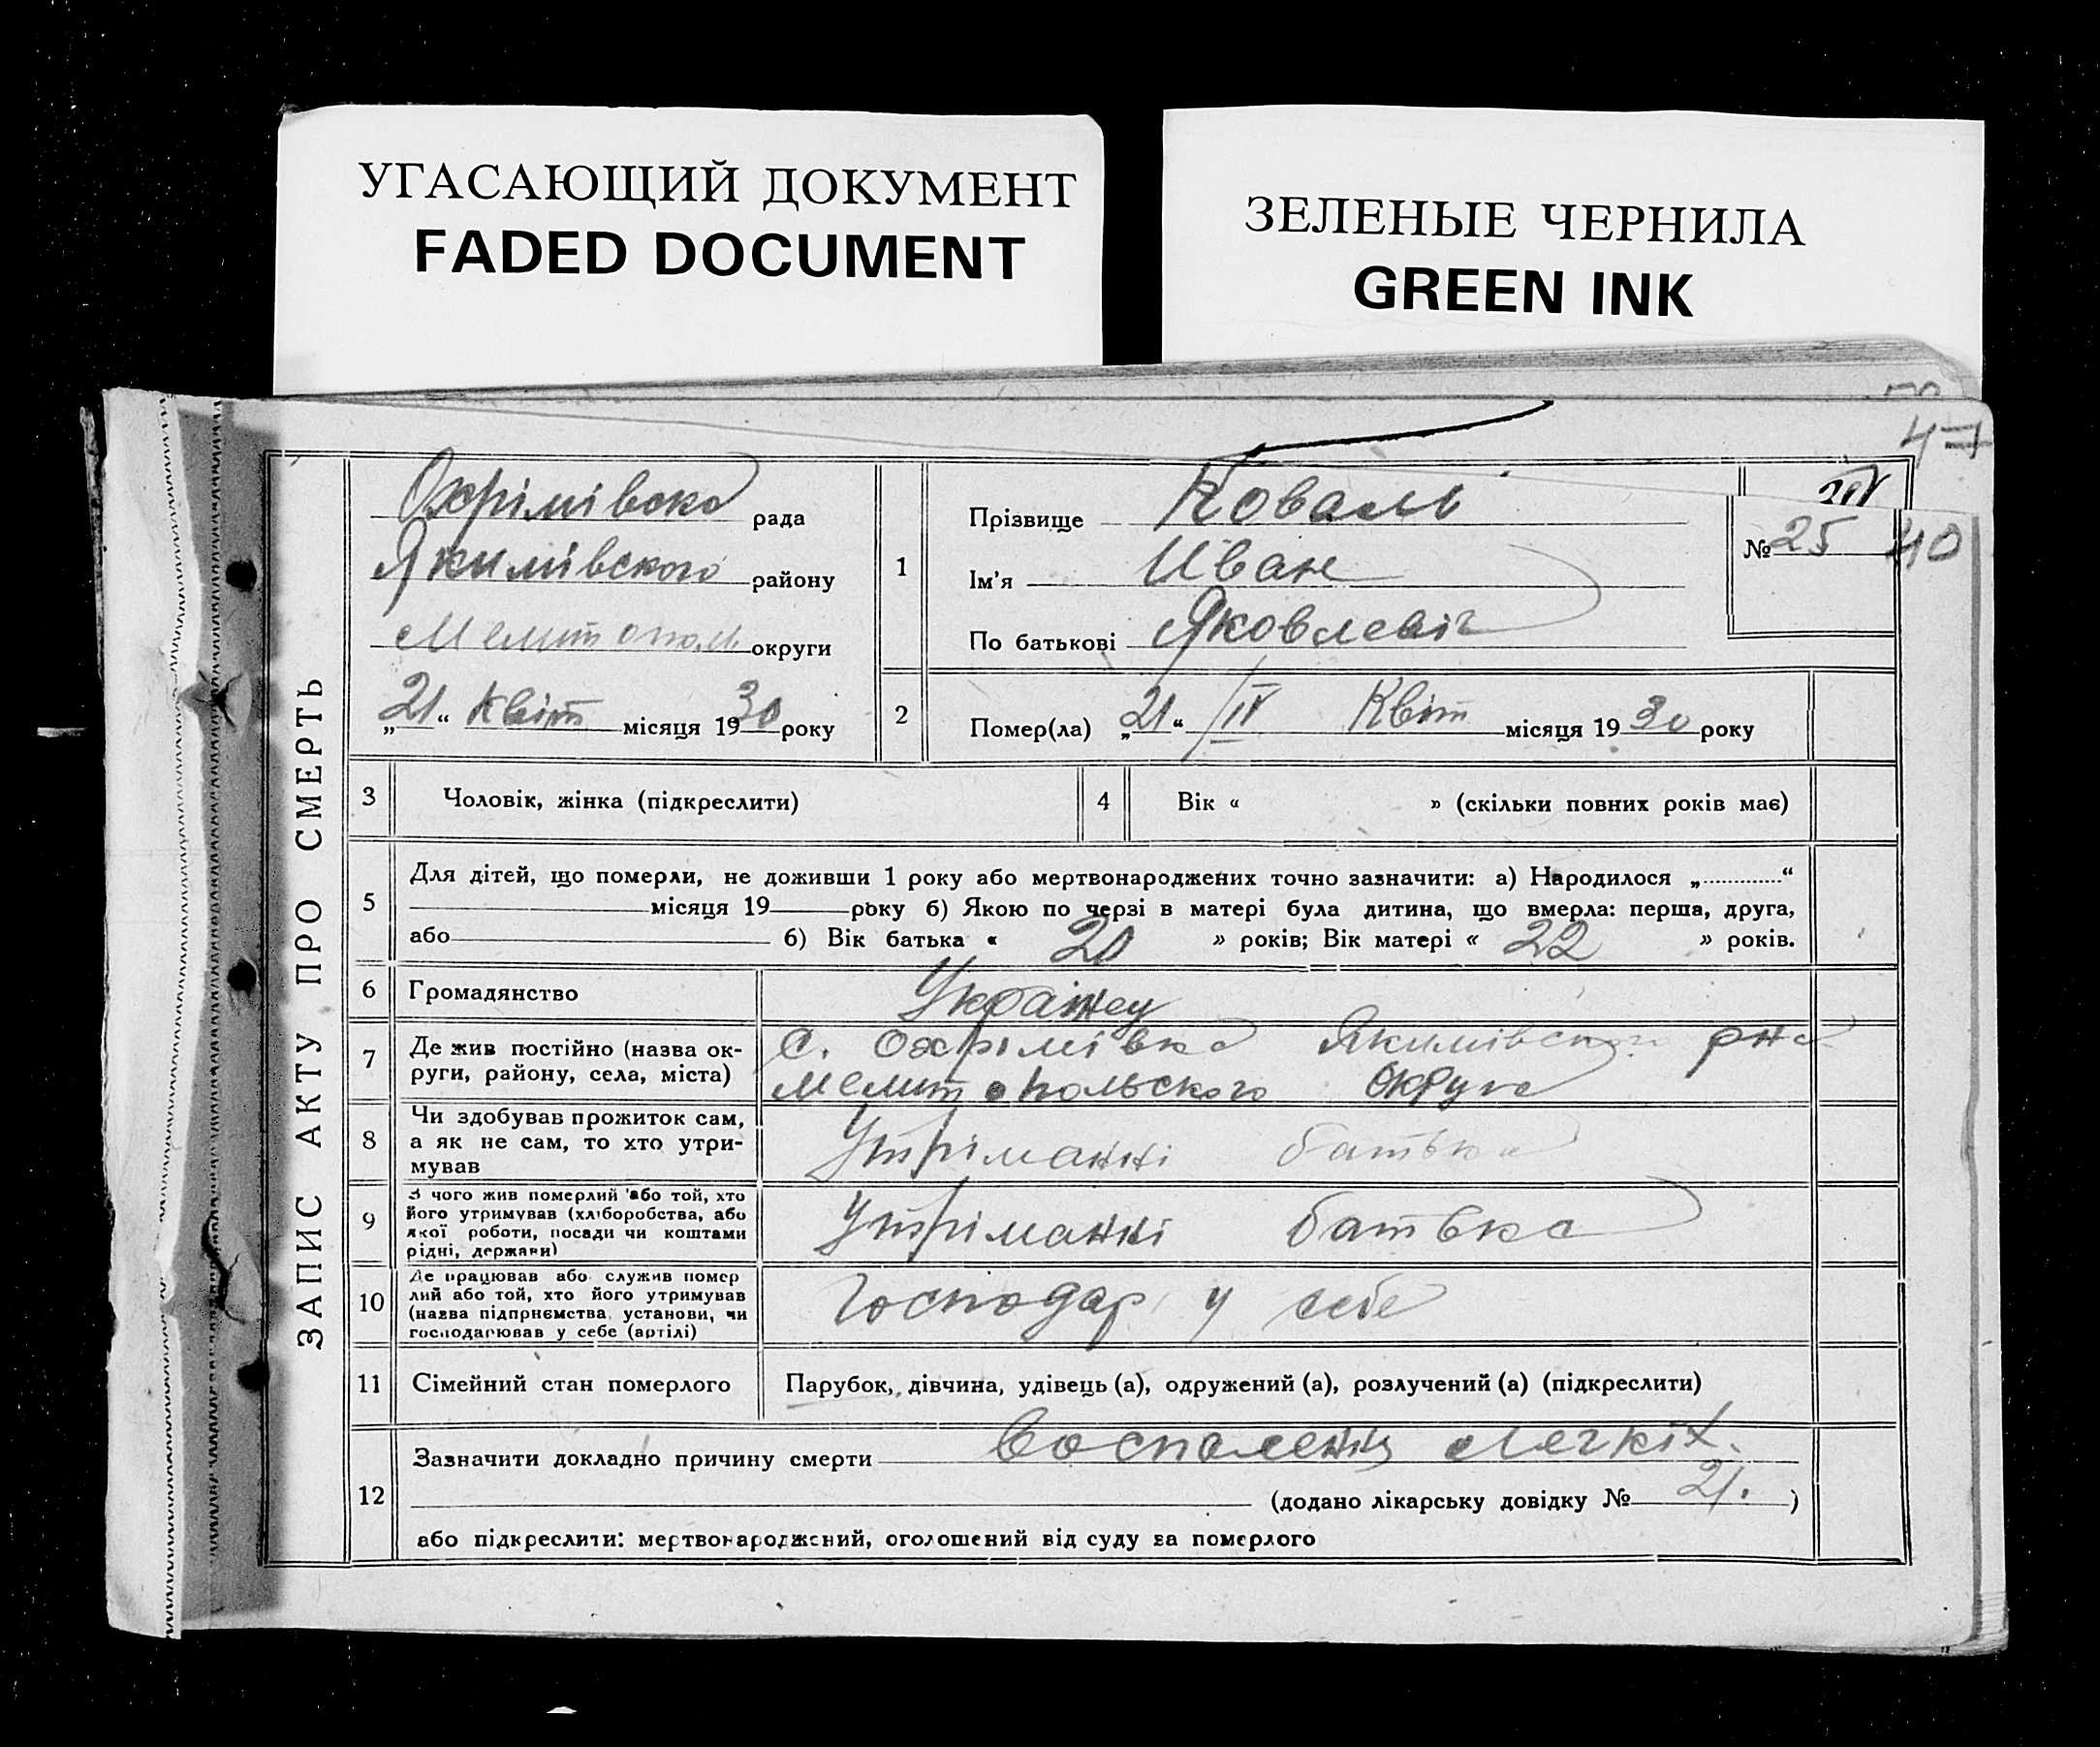 УГАСАЮЩИЙ ДОКУМЕНТ
FADED DOCUMENT
ЗЕЛЕНЫЕ ЧЕРНИЛА
GREEN INK
47
ЗАПИС АКТУ ПРО СМЕРТЬ
Охрімівска рада
Якимівского району
Мелитопол. округи
„21“ Квіт місяця 1930 року
1
Прізвище Коваль
Ім'я Иван
По батькові Яковлевіч
№ 25
40
2
Помер(ла) „21“ /IV Квіт місяця 1930 року
3 Чоловік, жінка (підкреслити)
4 Вік « » (скільки повних років має)
5
Для дітей, що померли, не доживши 1 року або мертвонароджених точно зазначити: а) Народилося „............“
місяця 19 року б) Якою по черзі в матері була дитина, що вмерла: перша, друга,
або б) Вік батька « 20 » років; Вік матері « 22 » років.
6 Громадянство Украінец
7
Де жив постійно (назва ок-
руги, району, села, міста)
С. Охрімівка Якимівского рна
Мелитопольского Округа
8
Чи здобував прожиток сам,
а як не сам, то хто утри-
мував
Утріманні батька
9
З чого жив померлий або той, хто
його утримував (хліборобства, або
якої роботи, посади чи коштами
рідні, держави)
Утріманні батька
10
Де працював або служив помер
лий або той, хто його утримував
(назва підприємства, установи, чи
господарював у себе (артілі)
Господар у себе
11 Сімейний стан померлого Парубок, дівчина, удівець (а), одружений (а), розлучений (а) (підкреслити)
12
Зазначити докладно причину смерти Воспаления Легкіх.
(додано лікарську довідку № 21. )
або підкреслити: мертвонароджений, оголошений від суду за померлого